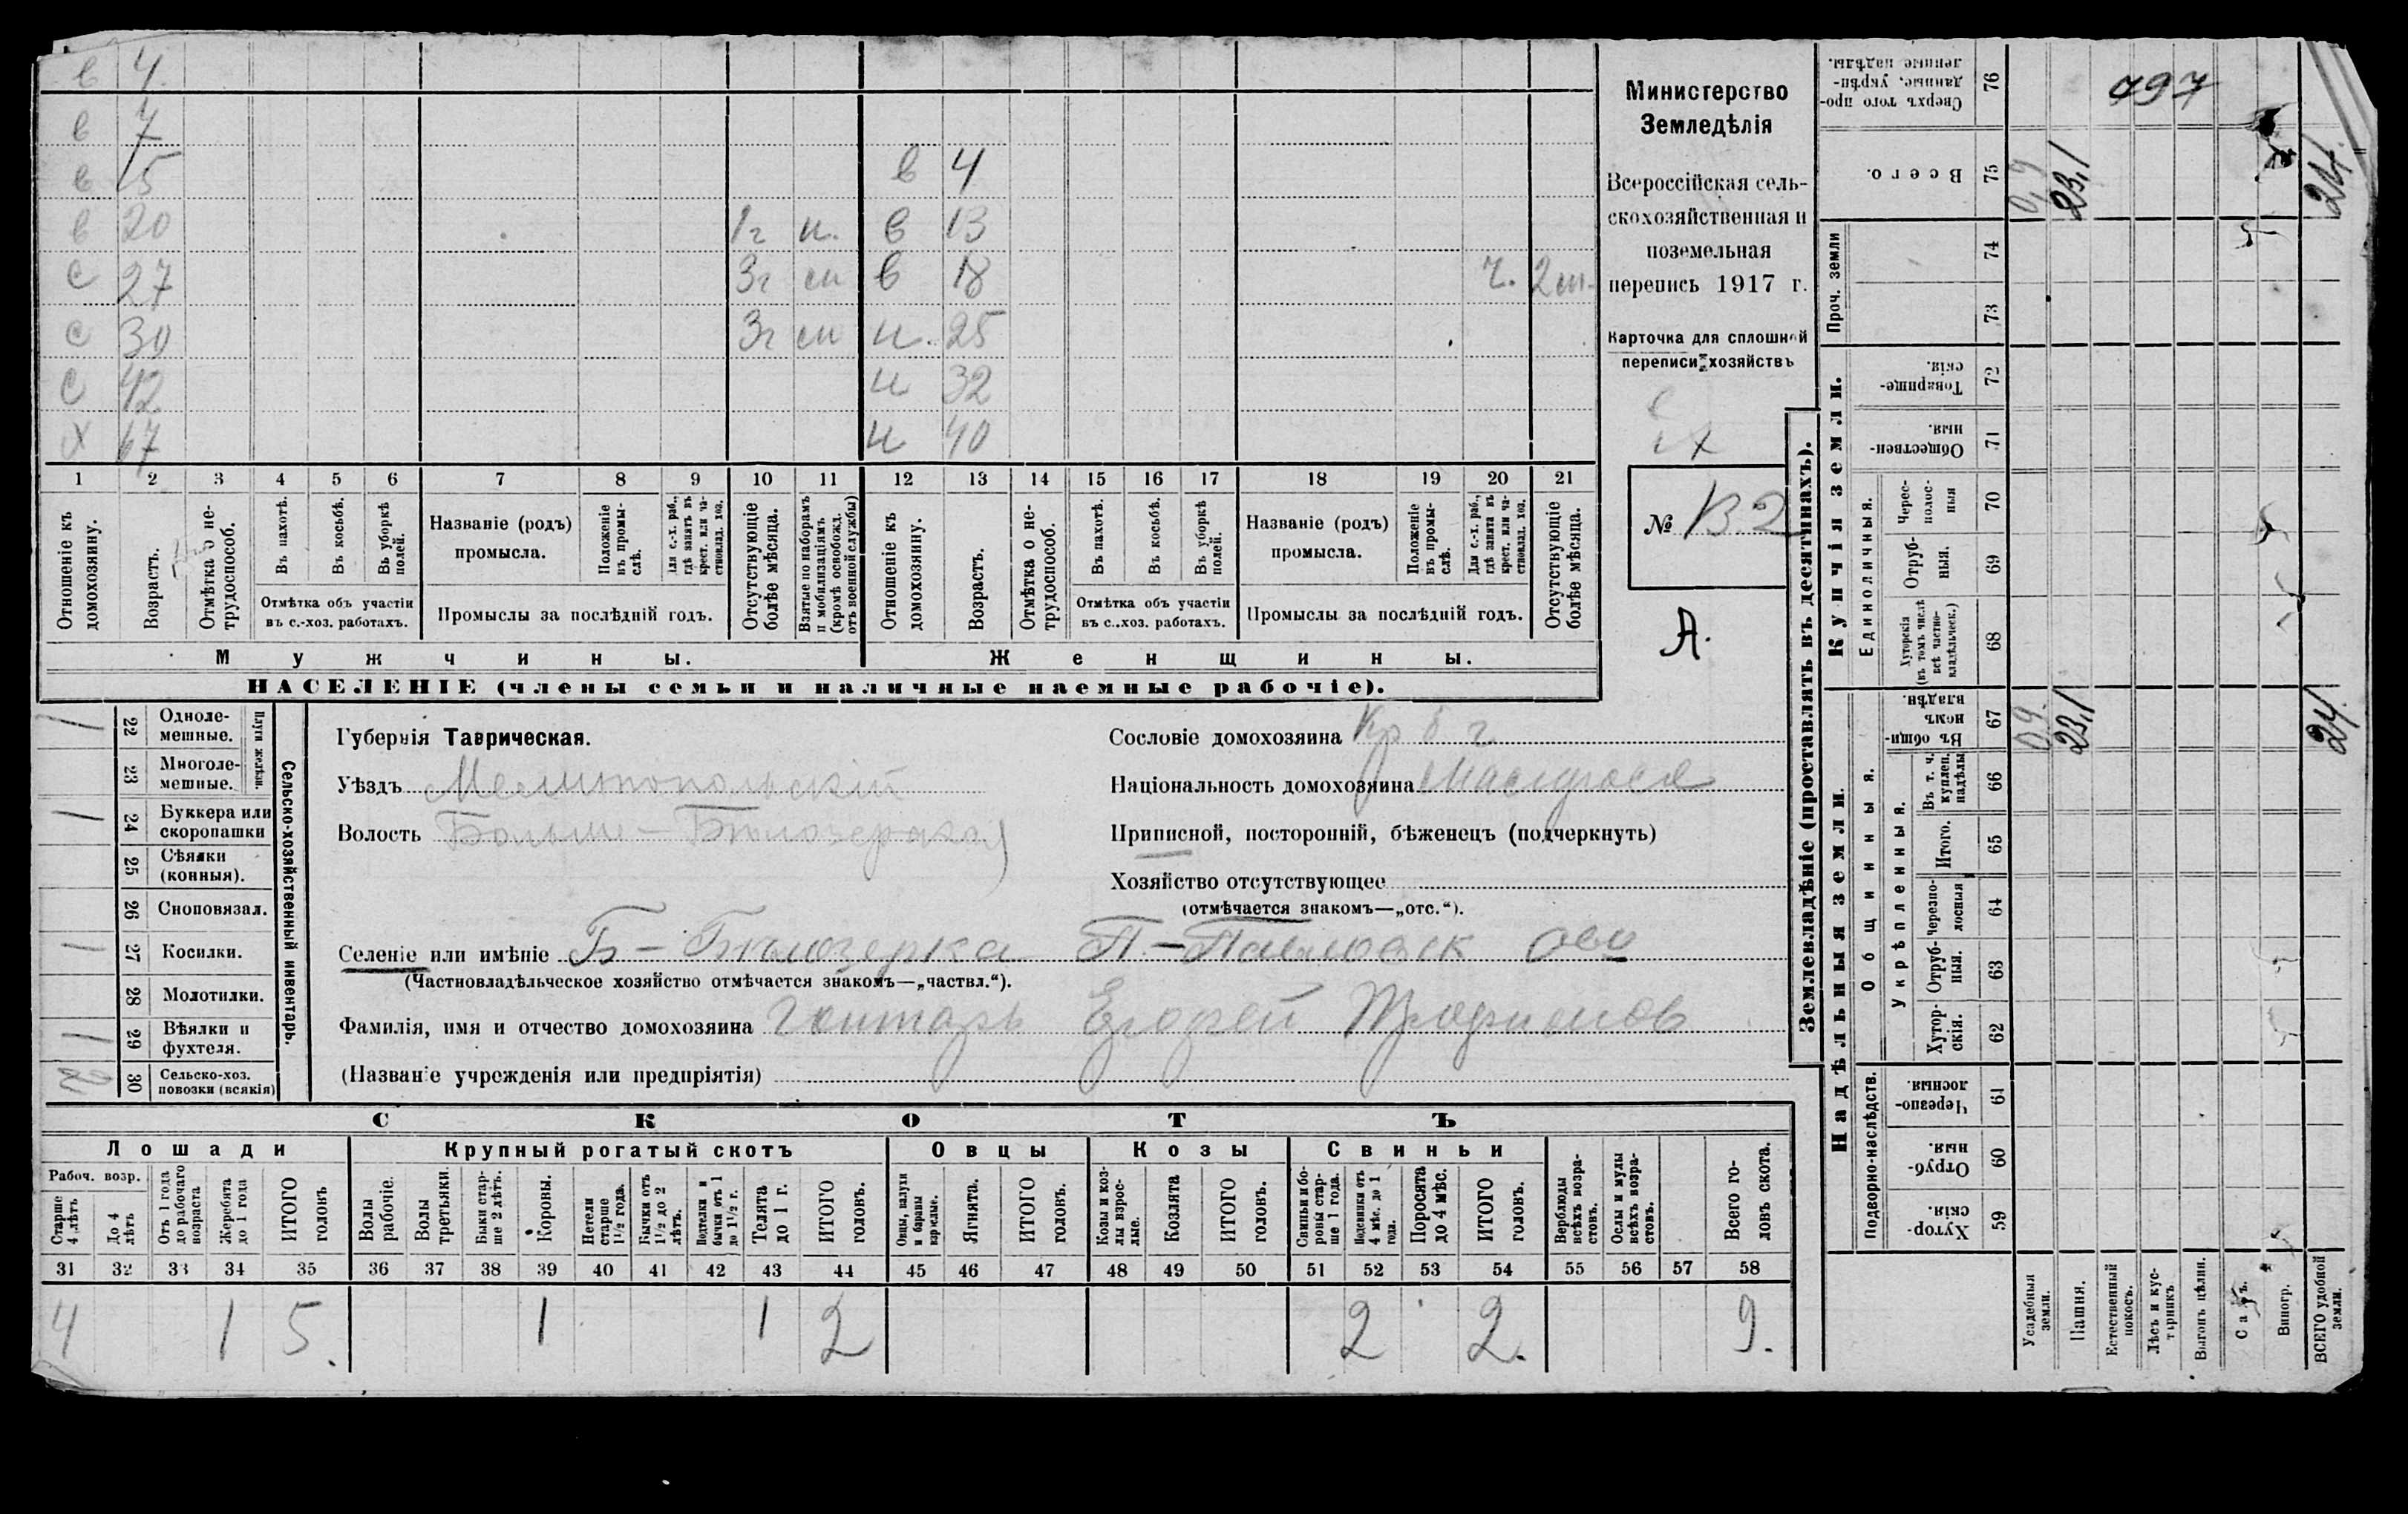 в 4.
в 7
в 5 в 4
в 20 1г н. в 13
с 27 3г сн в 18 г. 2 м.
с 30 3г сн н. 25
с 42 н 32
х 67 н 40
1 2 3 4 5 6 7 8 9 10 11 12 13 14 15 16 17 18 19 20 21
Отношеніе къ домохозяину.
Возрастъ.
Отмѣтка о не-трудоспособ.
Въ пахотѣ.
Въ косьбѣ.
Въ уборкѣ полей.
Отмѣтка объ участіи
въ с.-хоз. работахъ.
Названіе (родъ)
промысла.
Положеніе въ промы-слѣ.
Для с.-х. раб., гдѣ занятъ въ крест. или ча-стновлад. хоз.
Промыслы за послѣдній годъ.
Отсутствующіе болѣе мѣсяца.
Взятые по наборамъ и мобилизаціямъ (кромѣ освобожд. отъ военной службы)
Отношеніе къ домохозяину.
Возрастъ.
Отмѣтка о не-трудоспособ.
Въ пахотѣ.
Въ косьбѣ.
Въ уборкѣ полей.
Отмѣтка объ участіи
въ с..хоз. работахъ.
Названіе (родъ)
промысла.
Положеніе въ промы-слѣ.
Для с.-х. раб., гдѣ занята въ крест. или ча-стновлад. хоз.
Промыслы за послѣдній годъ.
Отсутствующіе болѣе мѣсяца.
Мужчины.
Женщины.
НАСЕЛЕНІЕ (члены семьи и наличные наемные рабочіе).
Министерство
Земледѣлія
Всероссійская сель-
скохозяйственная и
поземельная
перепись 1917 г.
Карточка для сплошной
переписи хозяйствъ
х
№ В.2
А.
1 22 Одноле-мешные.
23 Многоле-мешные.
Плуги желѣзн.
1 24 Буккера или скоропашки
25 Сѣялки (конныя).
26 Сноповязал.
1 27 Косилки.
28 Молотилки.
1 29 Вѣялки и фухтеля.
30 Сельско-хоз. повозки (всякія)
Сельско-хозяйственный инвентарь.
Губернія Таврическая.
Уѣздъ Мелитопольскій
Волость Больше-Бѣлозерская
Сословіе домохозяина Кр б г
Національность домохозяина
Приписной, посторонній, бѣженецъ (подчеркнуть)
Хозяйство отсутствующее
(отмѣчается знакомъ—„отс.“).
Селеніе или имѣніе Б-Бѣлозерка П-Павловск ово
(Частновладѣльческое хозяйство отмѣчается знакомъ—„частвл.“).
Фамилія, имя и отчество домохозяина Гонтарь Егорей Трофимов
(Названіе учрежденія или предпріятія)
СКОТЪ
Лошади Крупный рогатый скотъ Овцы Козы Свиньи
Рабоч. возр.
Старше 4 лѣтъ
До 4 лѣтъ
Отъ 1 года до рабочаго возраста
Жеребята до 1 года
ИТОГО головъ
Волы рабочіе.
Волы третьяки.
Быки стар-ше 2 лѣтъ.
Коровы.
Нетели старше 1½ года.
Бычки отъ 1½ до 2 лѣтъ.
Подтелки и бычки отъ 1 до 1½ г.
Телята до 1 г.
ИТОГО головъ.
Овцы, валухи и бараны взрослые.
Ягнята.
ИТОГО головъ.
Козы и коз-лы взрос-лые.
Козлята
ИТОГО головъ.
Свиньи и бо-ровы стар-ше 1 года.
Подсвинки отъ 4 мѣс. до 1 года.
Поросята до 4 мѣс.
ИТОГО головъ.
Верблюды всѣхъ возра-стовъ.
Ослы и мулы всѣхъ возра-стовъ.
Всего го-ловъ скота.
31 32 33 34 35 36 37 38 39 40 41 42 43 44 45 46 47 48 49 50 51 52 53 54 55 56 57 58
4 1 5. 1 1 2 2 2. 9.
Землевладѣніе (проставлять въ десятинахъ).
Надѣльныя земли.
Купчія земли.
Проч. земли
Подворно-наслѣдств.
Общинныя.
Укрѣпленныя.
Единоличныя.
Сверхъ того про-данные, укрѣп-ленные надѣлы. 76 797
Всего. 75 0,9 23,1 24.
74
73
Товарище-скія. 72
Обществен-ныя. 71
Черес-полос-ныя 70
Отруб-ныя. 69
Хуторскія (въ томъ числѣ всѣ частно-владѣльческ.) 68
Въ общи-номъ владѣн. 67 0,9. 23,1 24.
Въ т. ч. куплен. надѣлы 66
Итого. 65
Черезпо-лосныя 64
Отруб-ныя. 63
Хутор-скія. 62
Черезпо-лосныя. 61
Отруб-ныя. 60
Хутор-скія. 59
Усадебныя земли.
Пашня.
Естественный покосъ.
Лѣсъ и кус-тарникъ
Выгонъ цѣлин.
Садъ.
Виногр.
ВСЕГО удобной земли.